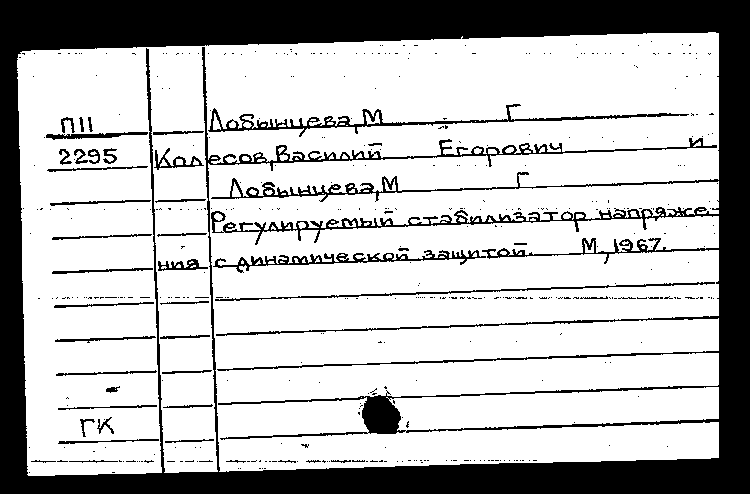 П11 Лобынцева, М Г
2295 Колесов, Василий Егорович и
Лобынцева, М Г
Регулируемый стабилизатор напряже-
ния с динамической защитой. М, 1967.
ГК